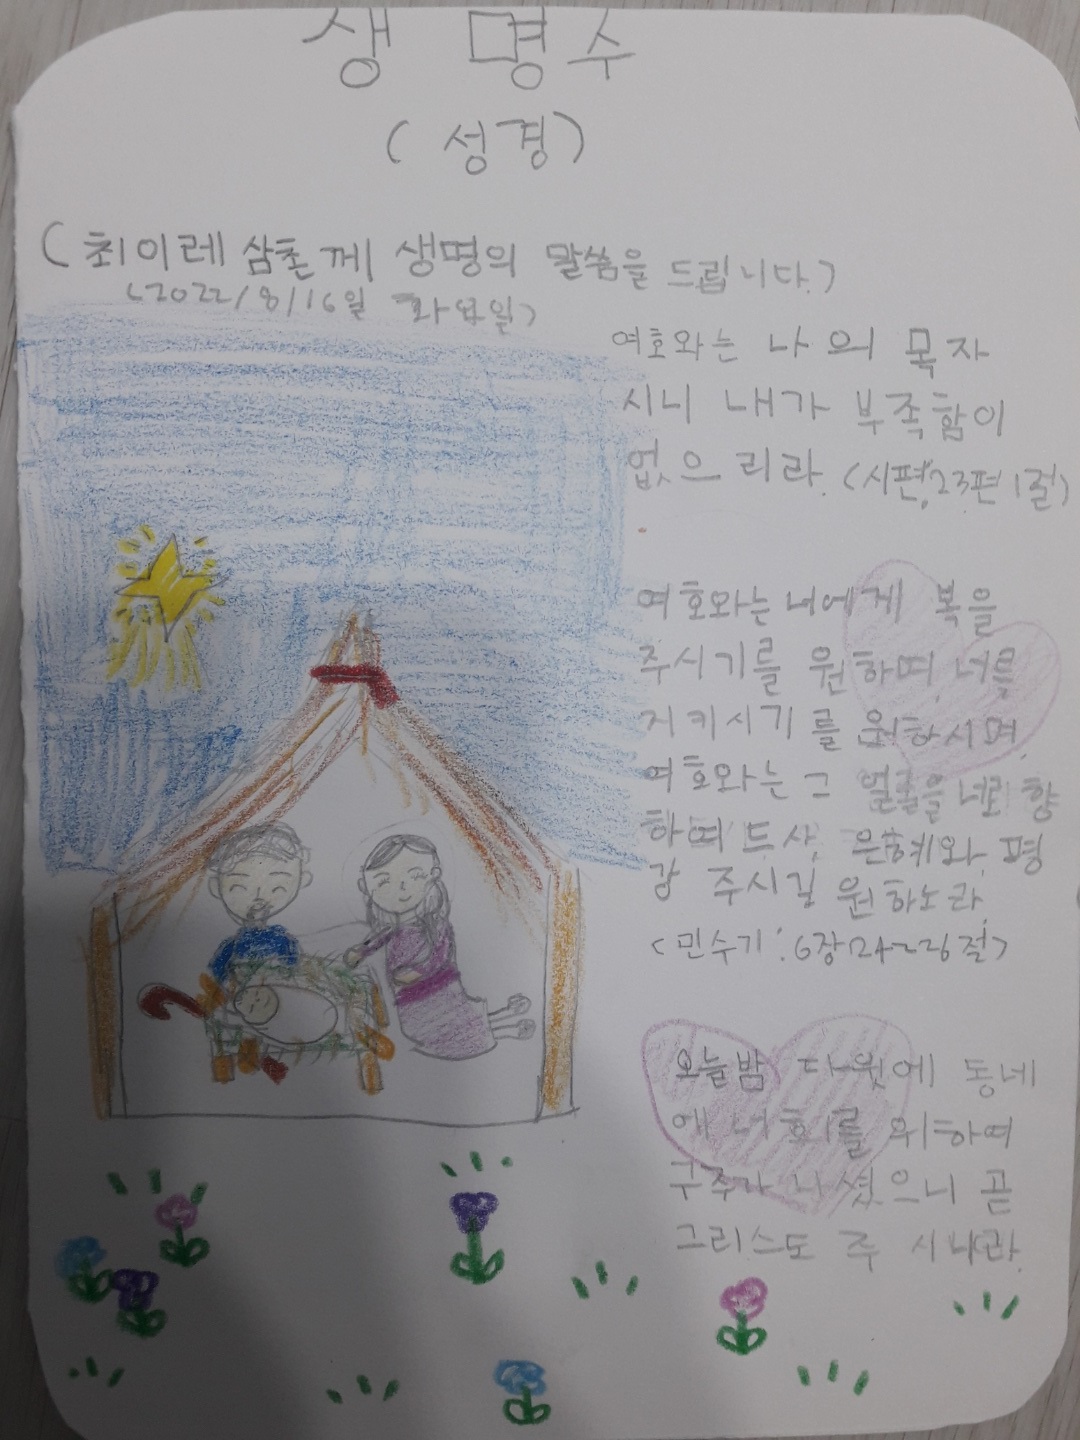 생명수
(성경)
(최이레 삼촌께 생명의 말씀을 드립니다.)
(2022/8/16일 화요일)
여호와는 나의 목자
시니 내가 부족함이
없으리라. (시편,23편1절)
여호와는 너에게 복을
주시기를 원하며, 너를
지키시기를 원하시며,
여호와는 그 얼굴을 너로 향
하여 드사, 은혜와, 평
강 주시길 원하노라.
(민수기:6장24~26절)
오늘밤 다윗에 동네
에 너희를 위하여
구주가 나셨으니 곧
그리스도 주 시니라.